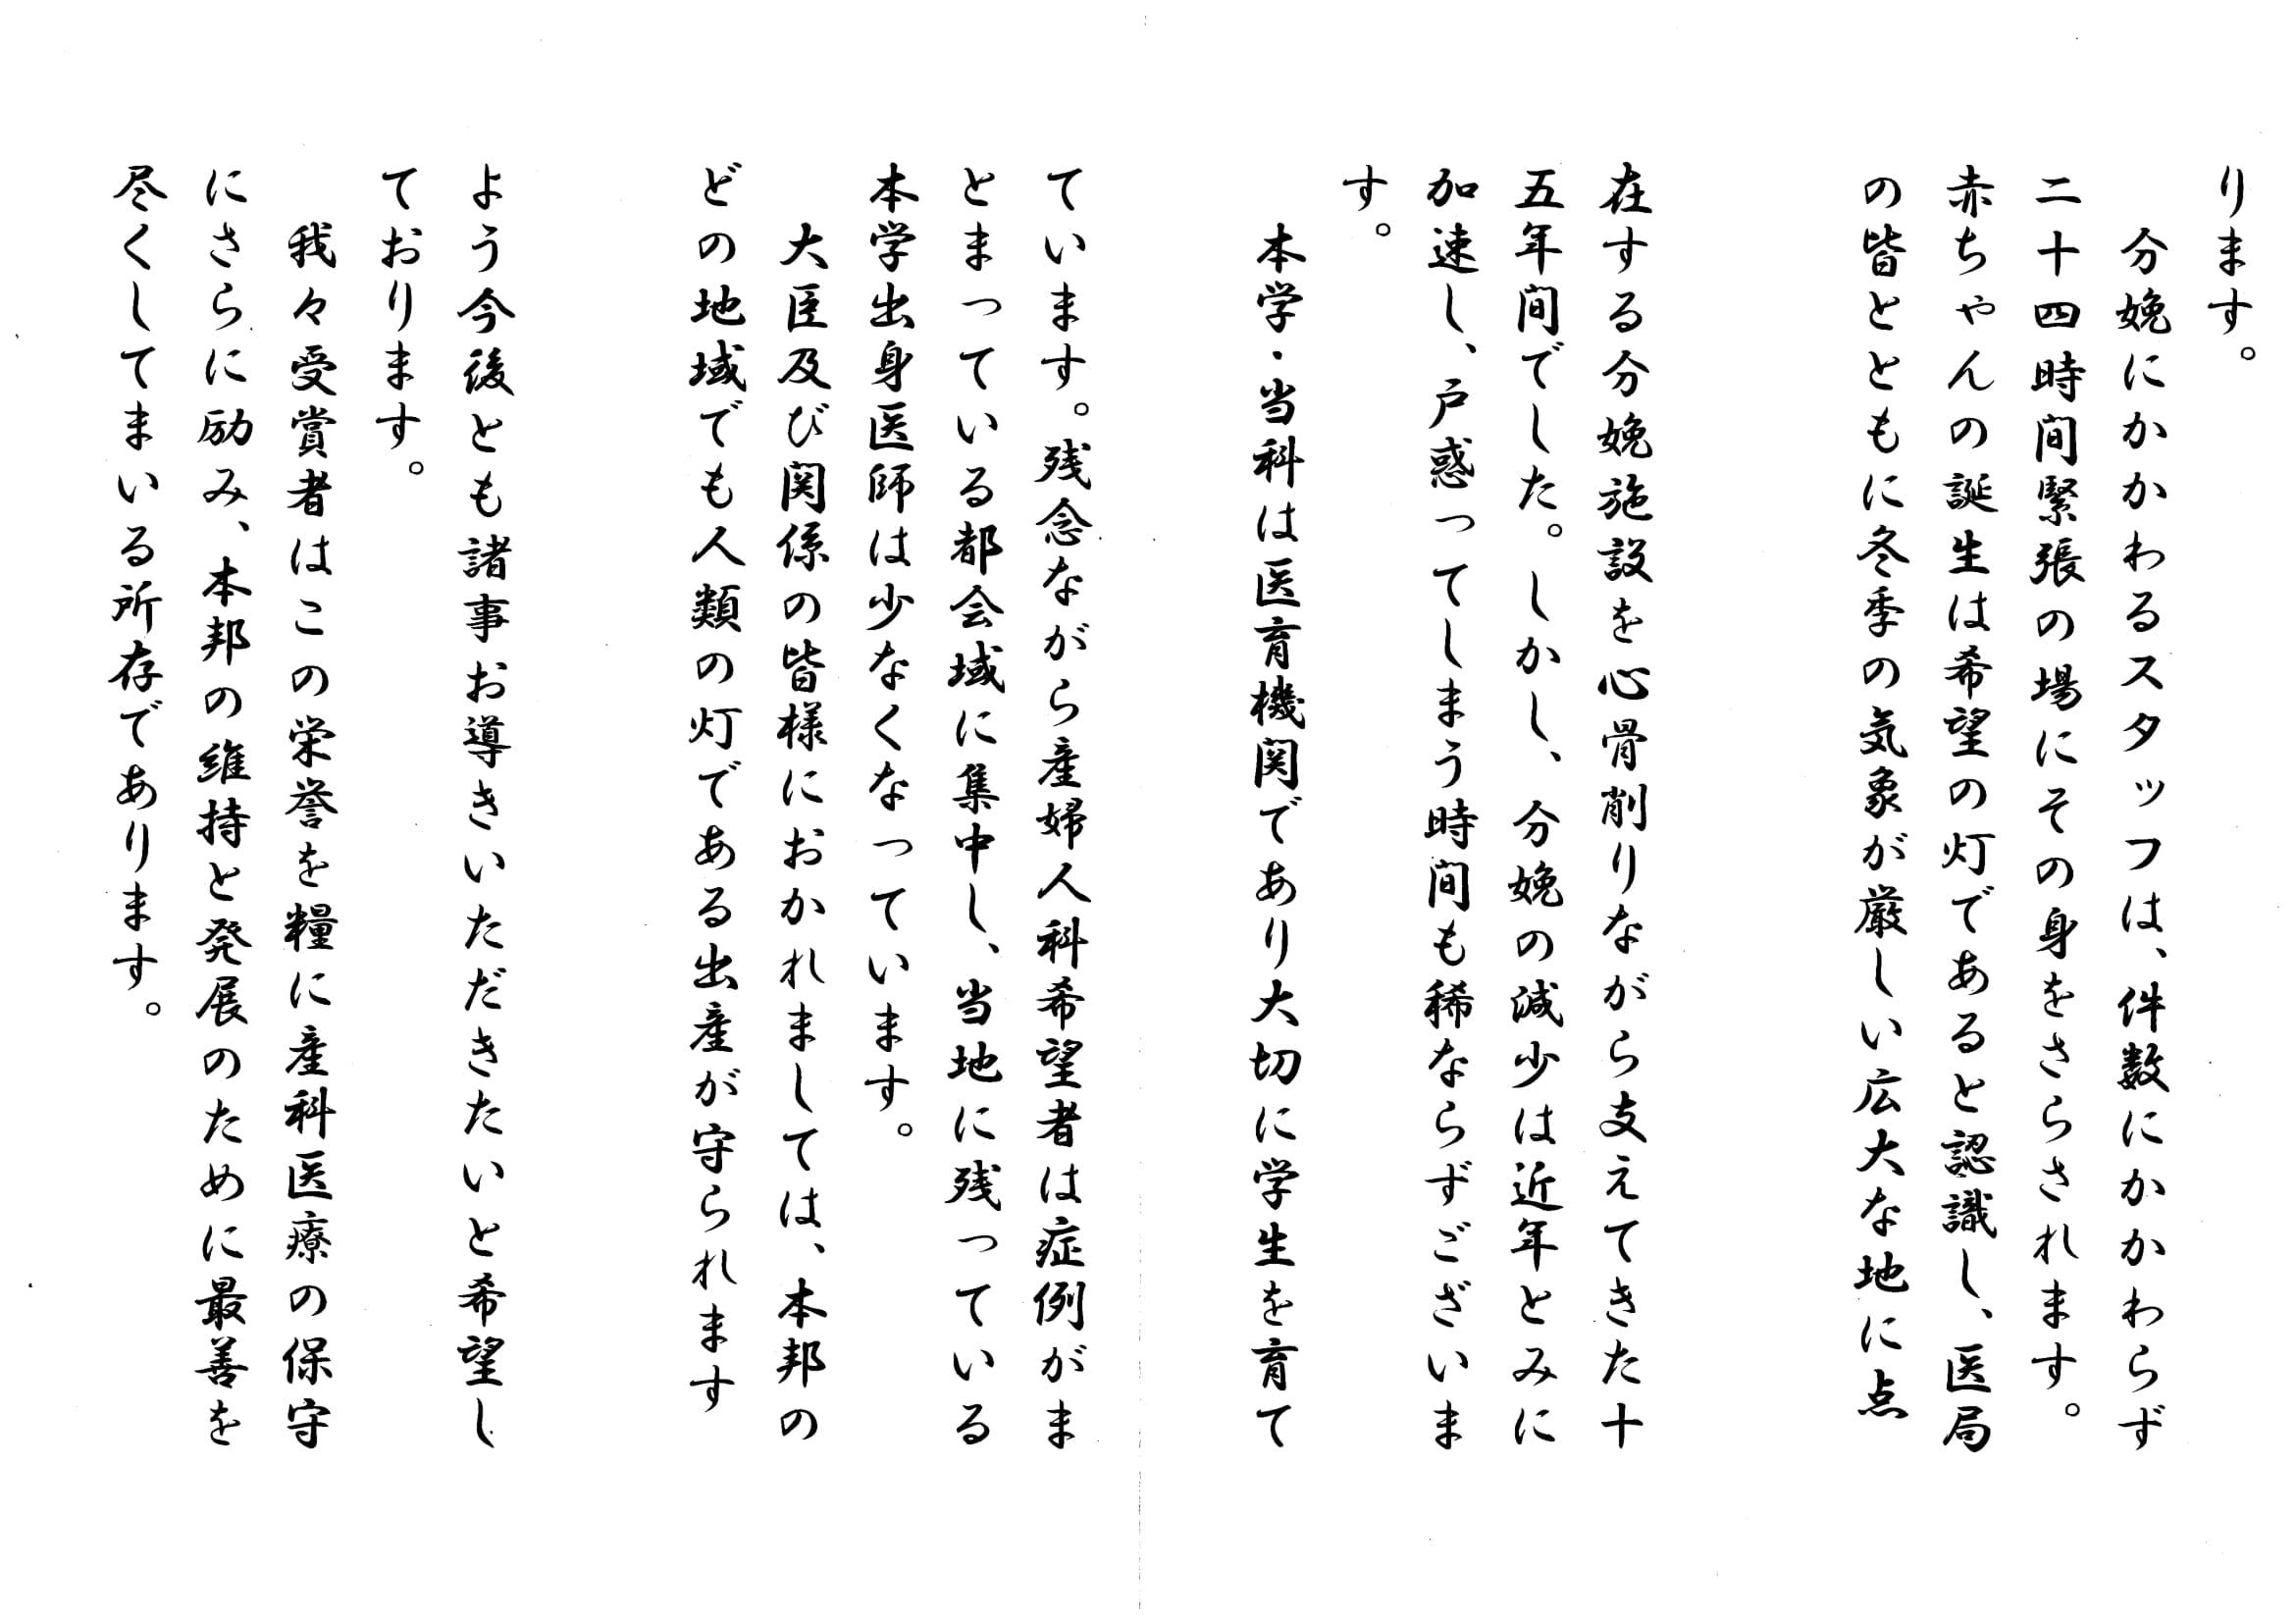 ります。
分娩にかかわるスタッフは、件数にかかわらず
二十四時間緊張の場にその身をさらされます。
赤ちゃんの誕生は希望の灯であると認識し、医局
の皆とともに冬季の気象が厳しい広大な地に点
在する分娩施設を心骨削りながら支えてきた十
五年間でした。しかし、分娩の減少は近年とみに
加速し、戸惑ってしまう時間も稀ならずございま
す。
本学・当科は医育機関であり大切に学生を育て
ています。残念ながら産婦人科希望者は症例がま
とまっている都会域に集中し、当地に残っている
本学出身医師は少なくなっています。
大臣及び関係の皆様におかれましては、本邦の
どの地域でも人類の灯である出産が守られます
よう今後とも諸事お導きいただきたいと希望し
ております。
我々受賞者はこの栄誉を糧に産科医療の保守
にさらに励み、本邦の維持と発展のために最善を
尽くしてまいる所存であります。